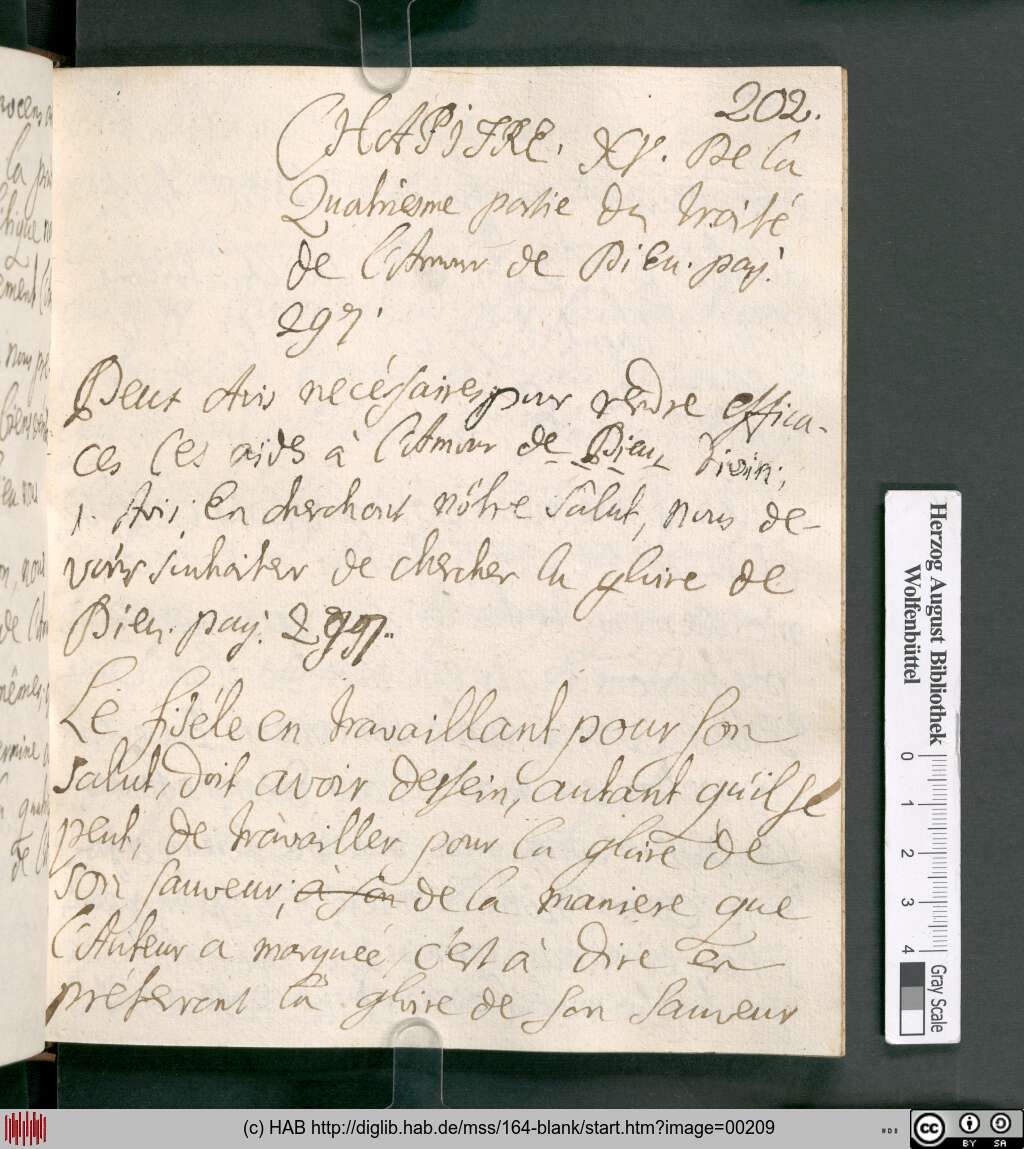 202.
CHAPITRE. XV. De la
Quatriesme partie du traité
de l'Amour de Dieu. pag.
297.
Deux Avis necéssaires pour rendre effica-
ces ces aides à l'Amour de Dieu Divin;
1. Avis. En cherchant nôtre Salut, nous de-
vons souhaiter de chercher la gloire de
Dieu. pag. 297.
Le fidéle en travaillant pour son
salut, doit avoir dessein, autant qu'il se
peut, de travailler pour la gloire de
son sauveur; à son de la maniere que
l'Auteur a marquée, c'est à dire en
préferant la gloire de son sauveur
Herzog August Bibliothek
Wolfenbüttel
0 1 2 3 4
Gray Scale
(c) HAB http://diglib.hab.de/mss/164-blank/start.htm?image=00209
cc BY SA